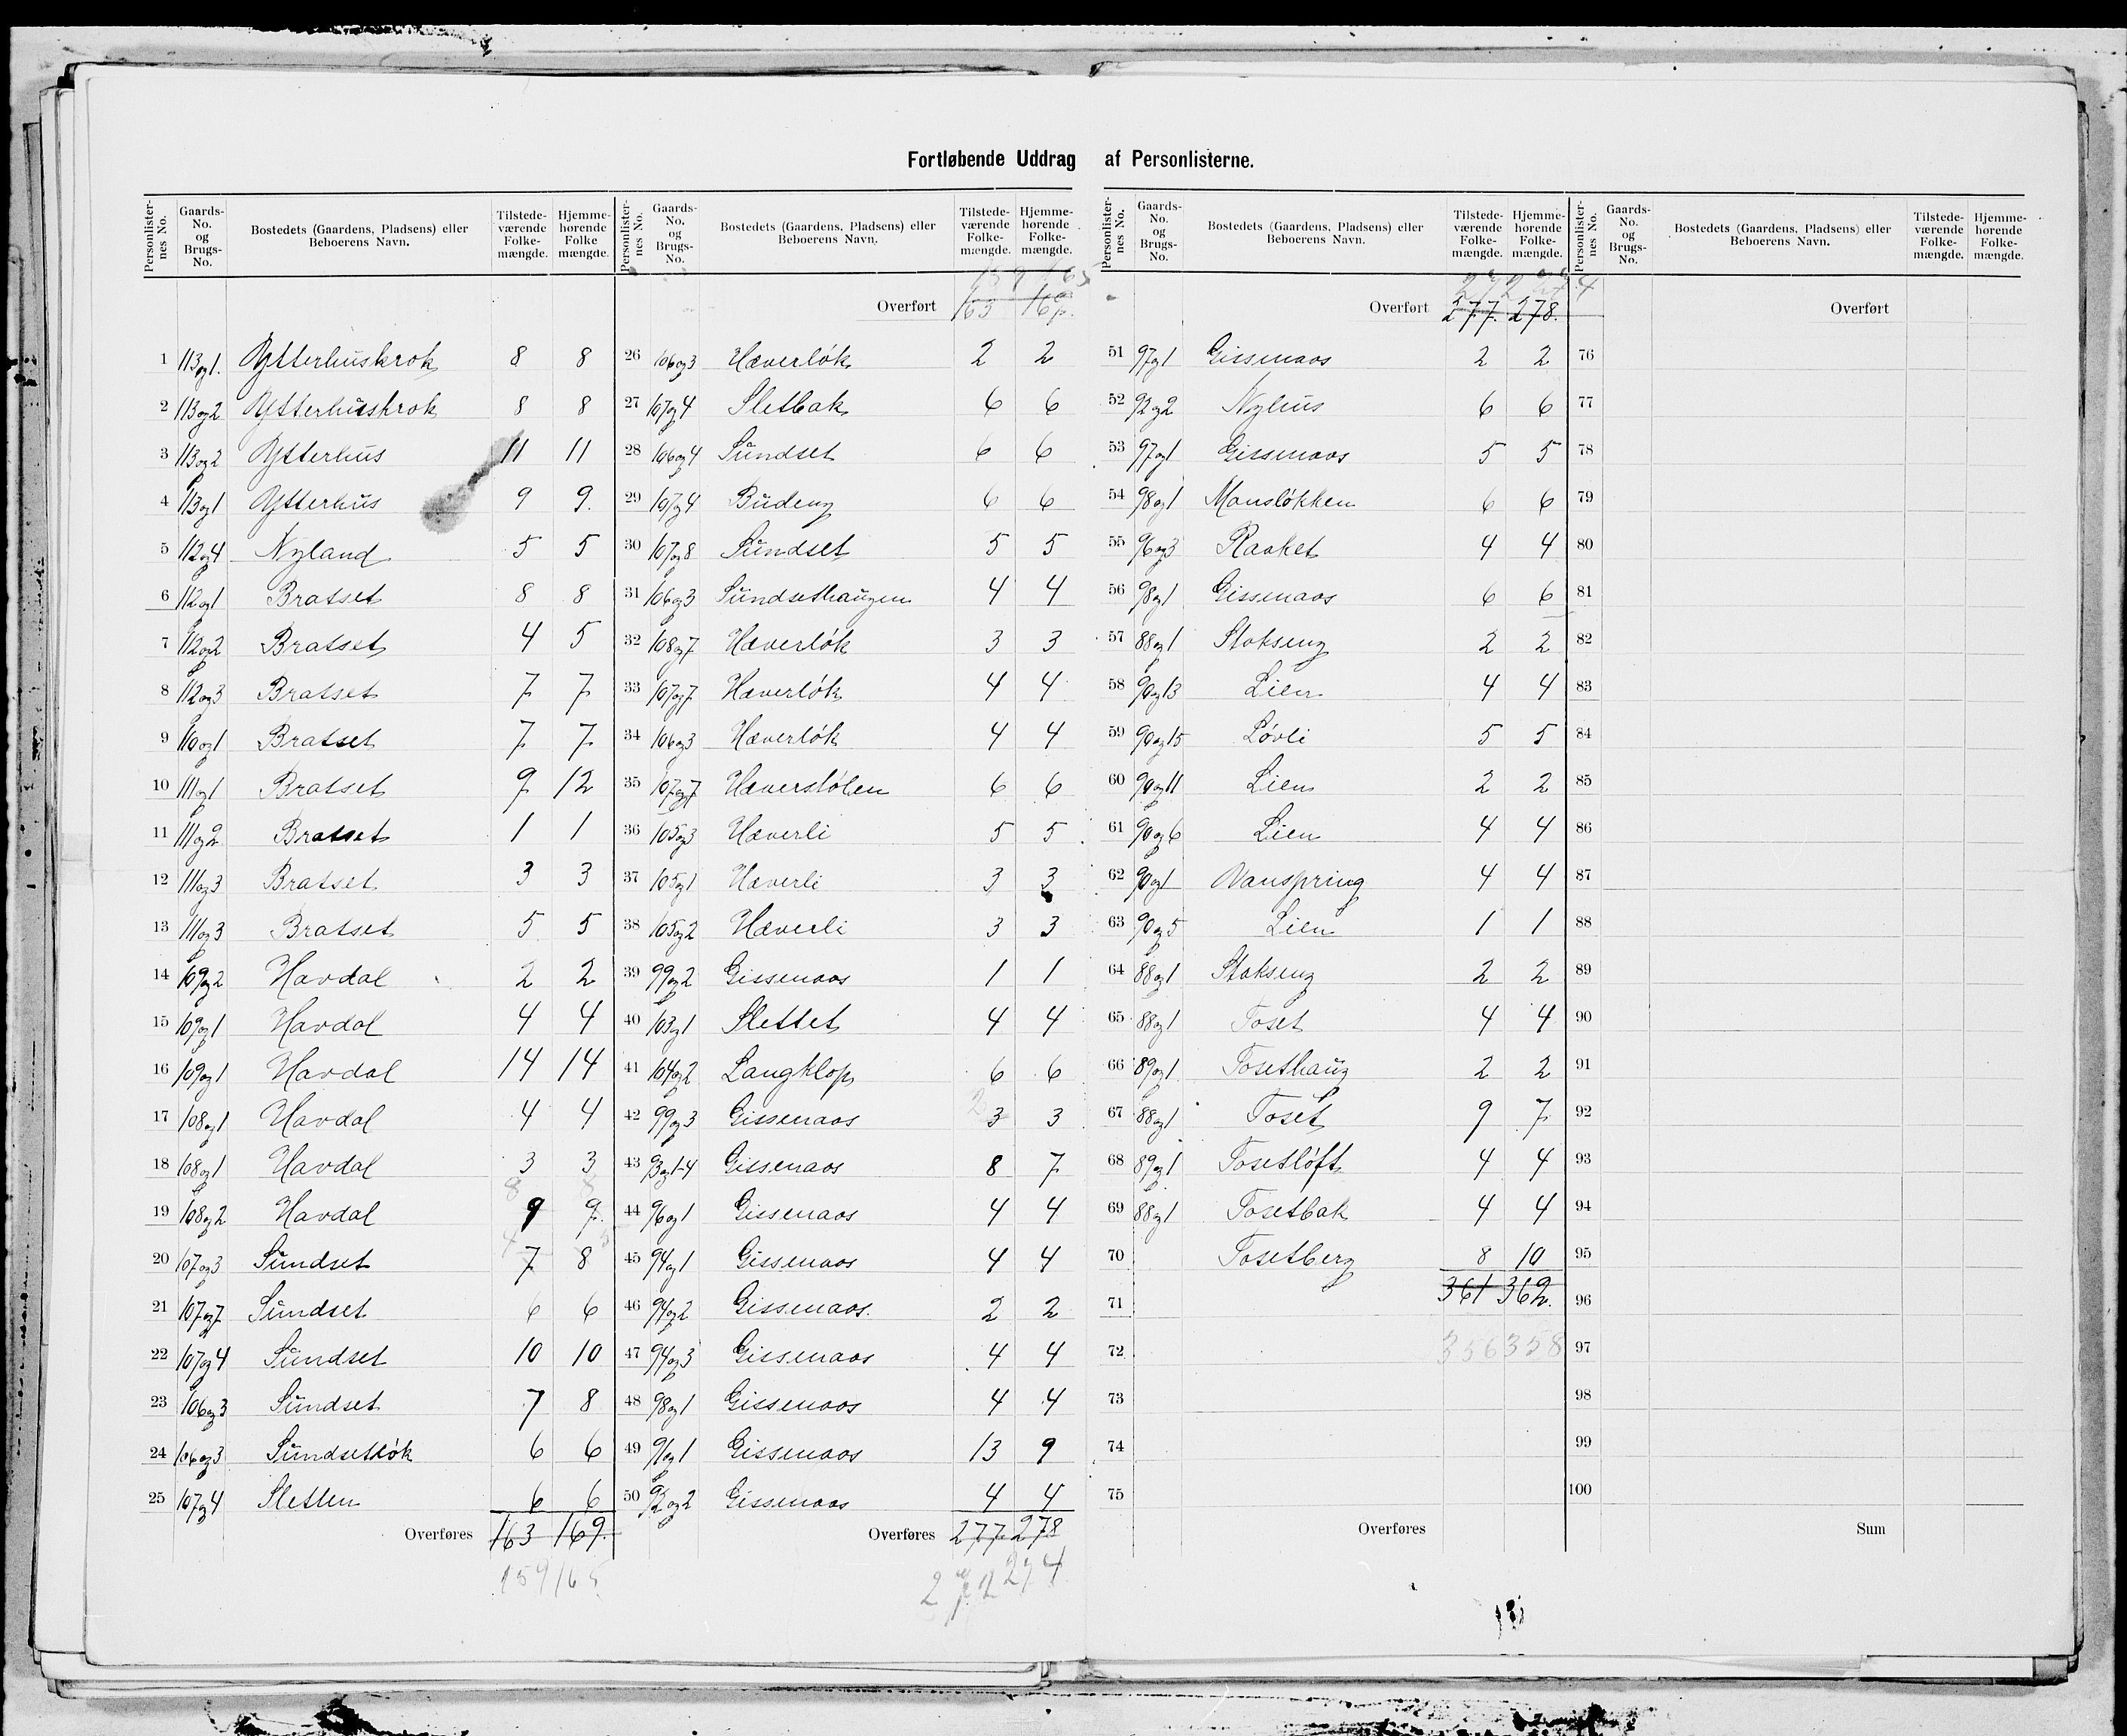 Fortløbende Uddrag af Personlisterne.
Personlister-nes No. | Gaards-No. og Brugs-No. | Bostedets (Gaardens, Pladsens) eller Beboerens Navn. | Tilstede-værende Folke-mængde. | Hjemme-hørende Folke mængde.
1 113og1. Ytterhuskrok 8 8
2 113og2 Ytterhuskrok 8 8
3 113og2 Ytterhus 11 11
4 113og1 Ytterhus 9 9.
5 112og4 Nyland 5 5
6 112og1 Bratset 8 8
7 112og2 Bratset 4 5
8 112og3 Bratset 7 7
9 110og1 Bratset 7 7
10 111og1 Bratset 9 12
11 111og2 Bratset 1 1
12 111og3 Bratset 3 3
13 111og3 Bratset 5 5
14 109og2 Havdal 2 2
15 109og1 Havdal 4 4
16 109og1 Havdal 14 14
17 108og1 Havdal 4 4
18 108og1 Havdal 3 3
19 108og2 Havdal 9 9.
20 107og3 Sundset 7 8
21 107og7 Sundset 6 6
22 107og4 Sundset 10 10
23 106og3 Sundset 7 8
24 106og3 Sundsetløk 6 6
25 107og4 Sletten 6 6
Overføres 163 169.
159 165
Personlister-nes No. | Gaards-No. og Brugs-No. | Bostedets (Gaardens, Pladsens) eller Beboerens Navn. | Tilstede-værende Folke-mængde. | Hjemme-hørende Folke-mængde.
159 165
Overført 163 169.
26 106og3 Hæverløk 2 2
27 107og4 Sletbak 6 6
28 106og4 Sundset 6 6
29 107og4 Budeng 6 6
30 107og8 Sundset 5 5
31 106og3 Sundsethaugen 4 4
32 108og7 Hæverløk 3 3
33 107og7 Hæverløk 4 4
34 106og3 Hæverløk 4 4
35 107og7 Hæverstølen 6 6
36 105og3 Hæverli 5 5
37 105og1 Hæverli 3 3
38 105og2 Hæverli 3 3
39 99og2 Gissenaas 1 1
40 103og1 Slettet 4 4
41 104og2 Langklop 6 6
42 99og3 Gissenaas 3 3
43 93og1-4 Gissenaas 8 7
44 96og1 Gissenaas 4 4
45 94og1 Gissenaas 4 4
46 94og2 Gissenaas. 2 2
47 94og3 Gissenaas 4 4
48 98og1 Gissenaas 4 4
49 91og1 Gissenaas 13 9
50 92og2 Gissenaas 4 4
Overføres 277 278
272 274
Personlister-nes No. | Gaards-No. og Brugs-No. | Bostedets (Gaardens, Pladsens) eller Beboerens Navn. | Tilstede-værende Folke-mængde. | Hjemme-hørende Folke-mængde.
272 274
Overført 277. 278.
51 97og1 Gissenaas 2 2
52 92og2 Nyhus 6 6
53 97og1 Gissenaas 5 5
54 98og1 Mansløkken 6 6
55 96og3 Raaket 4 4
56 98og1 Gissenaas 6 6
57 88og1 Stokseng 2 2
58 90og13 Lien 4 4
59 90og15 Løvli 5 5
60 90og11 Lien 2 2
61 90og6 Lien 4 4
62 90og1 Vanspring 4 4
63 90og5 Lien 1 1
64 88og1 Stokseng 2 2
65 88og1 Toset 4 4
66 89og1 Tosethaug 2 2
67 88og1 Toset 9 7
68 89og1 Tosetløft 4 4
69 88og1 Tosetbak 4 4
70 Tosetberg 8 10
71 361 362.
72 356 358
73
74
75
Overføres
Personlister-nes No. | Gaards-No. og Brugs-No. | Bostedets (Gaardens, Pladsens) eller Beboerens Navn. | Tilstede-værende Folke-mængde. | Hjemme-hørende Folke-mængde.
Overført
76
77
78
79
80
81
82
83
84
85
86
87
88
89
90
91
92
93
94
95
96
97
98
99
100
Sum